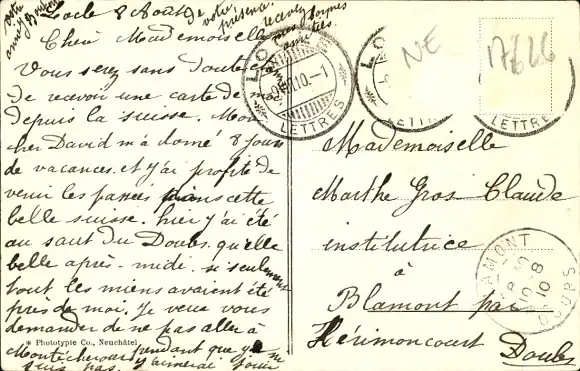 Locle 8 Août
Chère Mademoiselle
Vous serez sans doute
de recevoir une carte de moi
depuis la suisse. Mon
cher David m'a donné 8 jours
de vacances et j'ai profité de
venir les passer dans cette
belle suisse. hier j'ai été
au saut du Doubs. qu'elle
belle après-midi. si seulement
tout les miens avaient été
près de moi. Je veux vous
demander de ne pas aller à
Montécheroux pendant que je ne
suis pas. j'aimerai
votre
présence
recevez
mes bonnes
amitiés.
* Phototypie Co., Neuchâtel
LOCLE
10.-1
LETTRES
LETTRES
NE
17626
Mademoiselle
Marthe Gros Claude
institutrice
à
Blamont par
Hérimoncourt
Doubs
BLAMONT
8
10
DOUBS